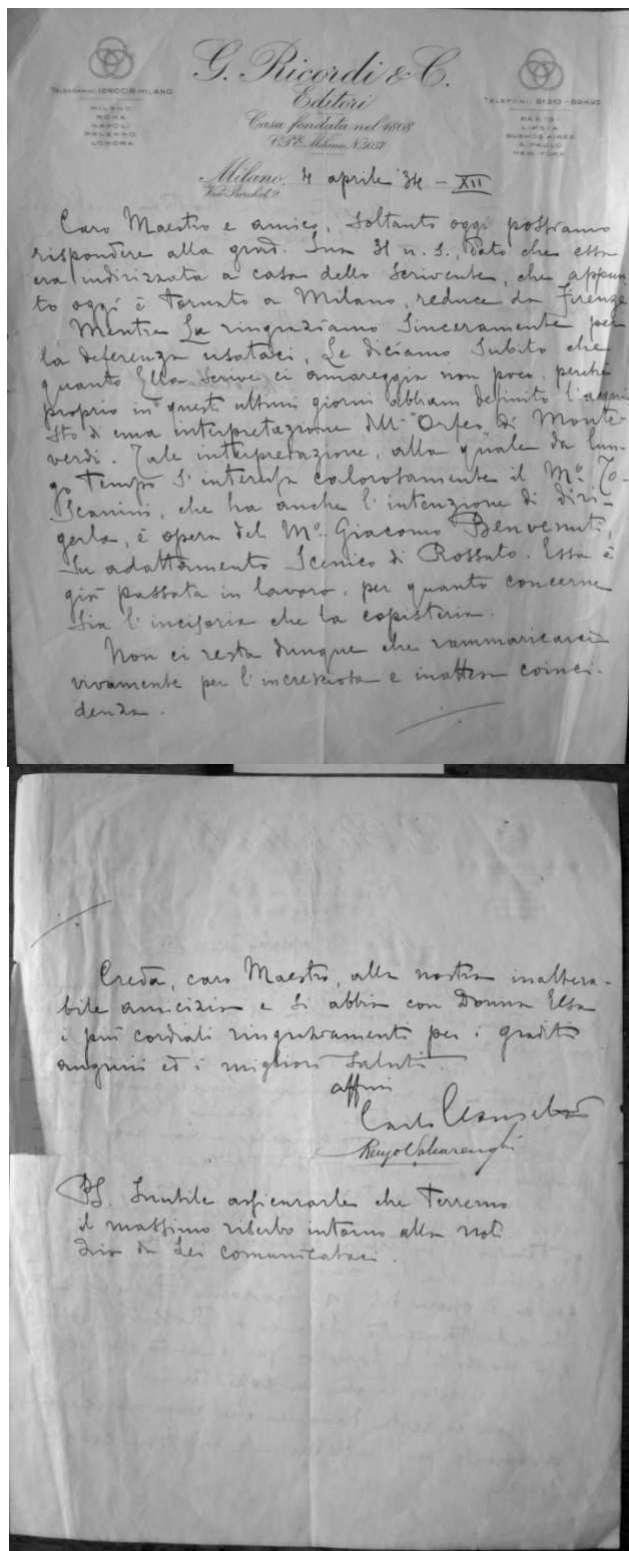 G. Ricordi & C.
Editori
Casa fondata nel 1808
C.P.E. Milano N. 3057
TELEGRAMMI: IDROCIR-MILANO
MILANO
ROMA
NAPOLI
PALERMO
LONDRA
TELEFONI:
PARIGI
LIPSIA
BUENOS AIRES
S. PAULO
NEW-YORK
Milano, 4 aprile 34 - XII
Viale Berchet 2
Caro Maestro e amico, soltanto oggi possiamo
rispondere alla grad. Sua 31 u. s., dato che essa
era indirizzata a casa dello scrivente, che appun
to oggi è tornato a Milano, reduce da Firenze
Mentre La ringraziamo sinceramente per
la deferenza usataci, Le diciamo subito che
quanto Ella scrive ci amareggia non poco, perchè
proprio in questi ultimi giorni abbiam definito l'acqui
sto di una interpretazione dell'"Orfeo" di Monte-
verdi. Tale interpretazione, alla quale da lun-
go tempo s'interessa calorosamente il Mº. To-
scanini, che ha anche l'intenzione di diri-
gerla, è opera del Mº. Giacomo Benvenuti,
su adattamento scenico di Rossato. Essa è
già passata in lavoro, per quanto concerne
sia l'incisoria che la copisteria.
Non ci resta dunque che rammaricarci
vivamente per l'incresciosa e inattesa coinci-
denza.
Creda, caro Maestro, alla nostra inaltera-
bile amicizia e si abbia con Donna Elsa
i più cordiali ringraziamenti per i graditi
auguri ed i migliori saluti.
affmi
Carlo Clausetti
Renzo Valcarenghi
PS. Inutile assicurarLe che terremo
il massimo riserbo intorno alla noti
zia da Lei comunicataci.